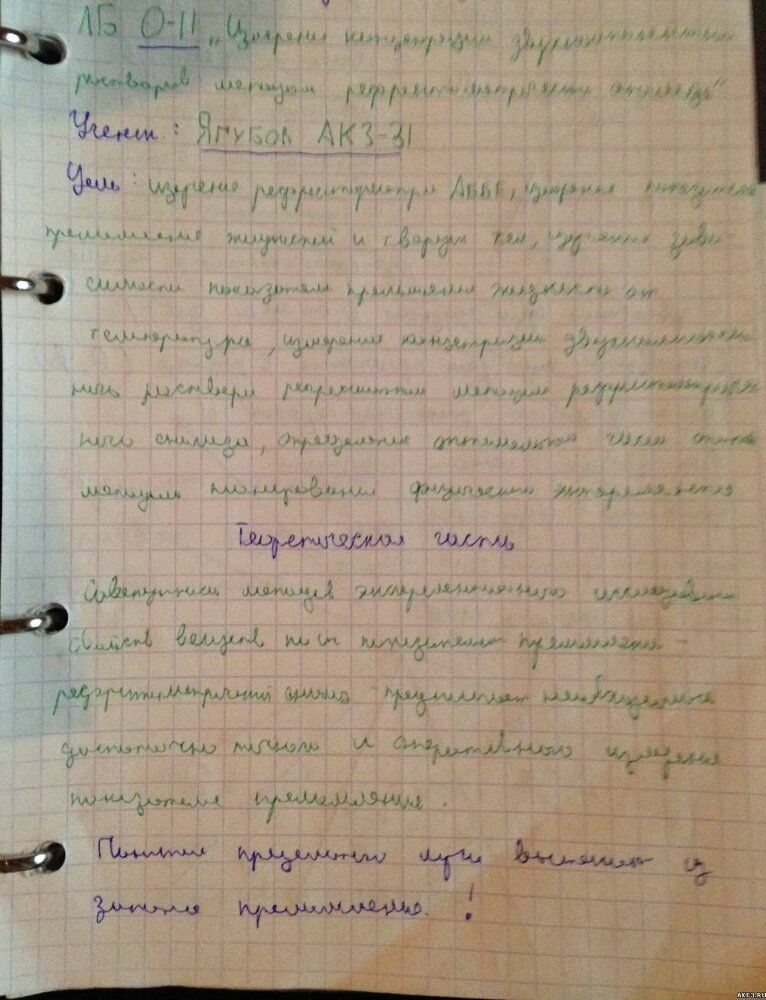 ЛБ О-11 „Измерение концентрации двухкомпонентных
растворов методом рефрактометрического анализа"
: Ягубов АК3-31
Цель: изучение рефрактометра АББЕ, измерение показателя
преломления жидкостей и твердых тел, изучение зави-
симости показателя преломления жидкости от
температуры, измерение концентрации двухкомпонент
раствора методом рефрактометрическ
ного анализа, определение оптимального числа
методом планирования физического эксперимента
Теоретическая часть
Совокупность методов экспериментального исследования
свойств веществ по их показателям преломления -
рефрактометрический анализ - предполагает необходимость
достаточно точного и оперативного измерения
показателя преломления.
Понятие предельного луча вытекает из
закона преломления. !
AKF3.RU